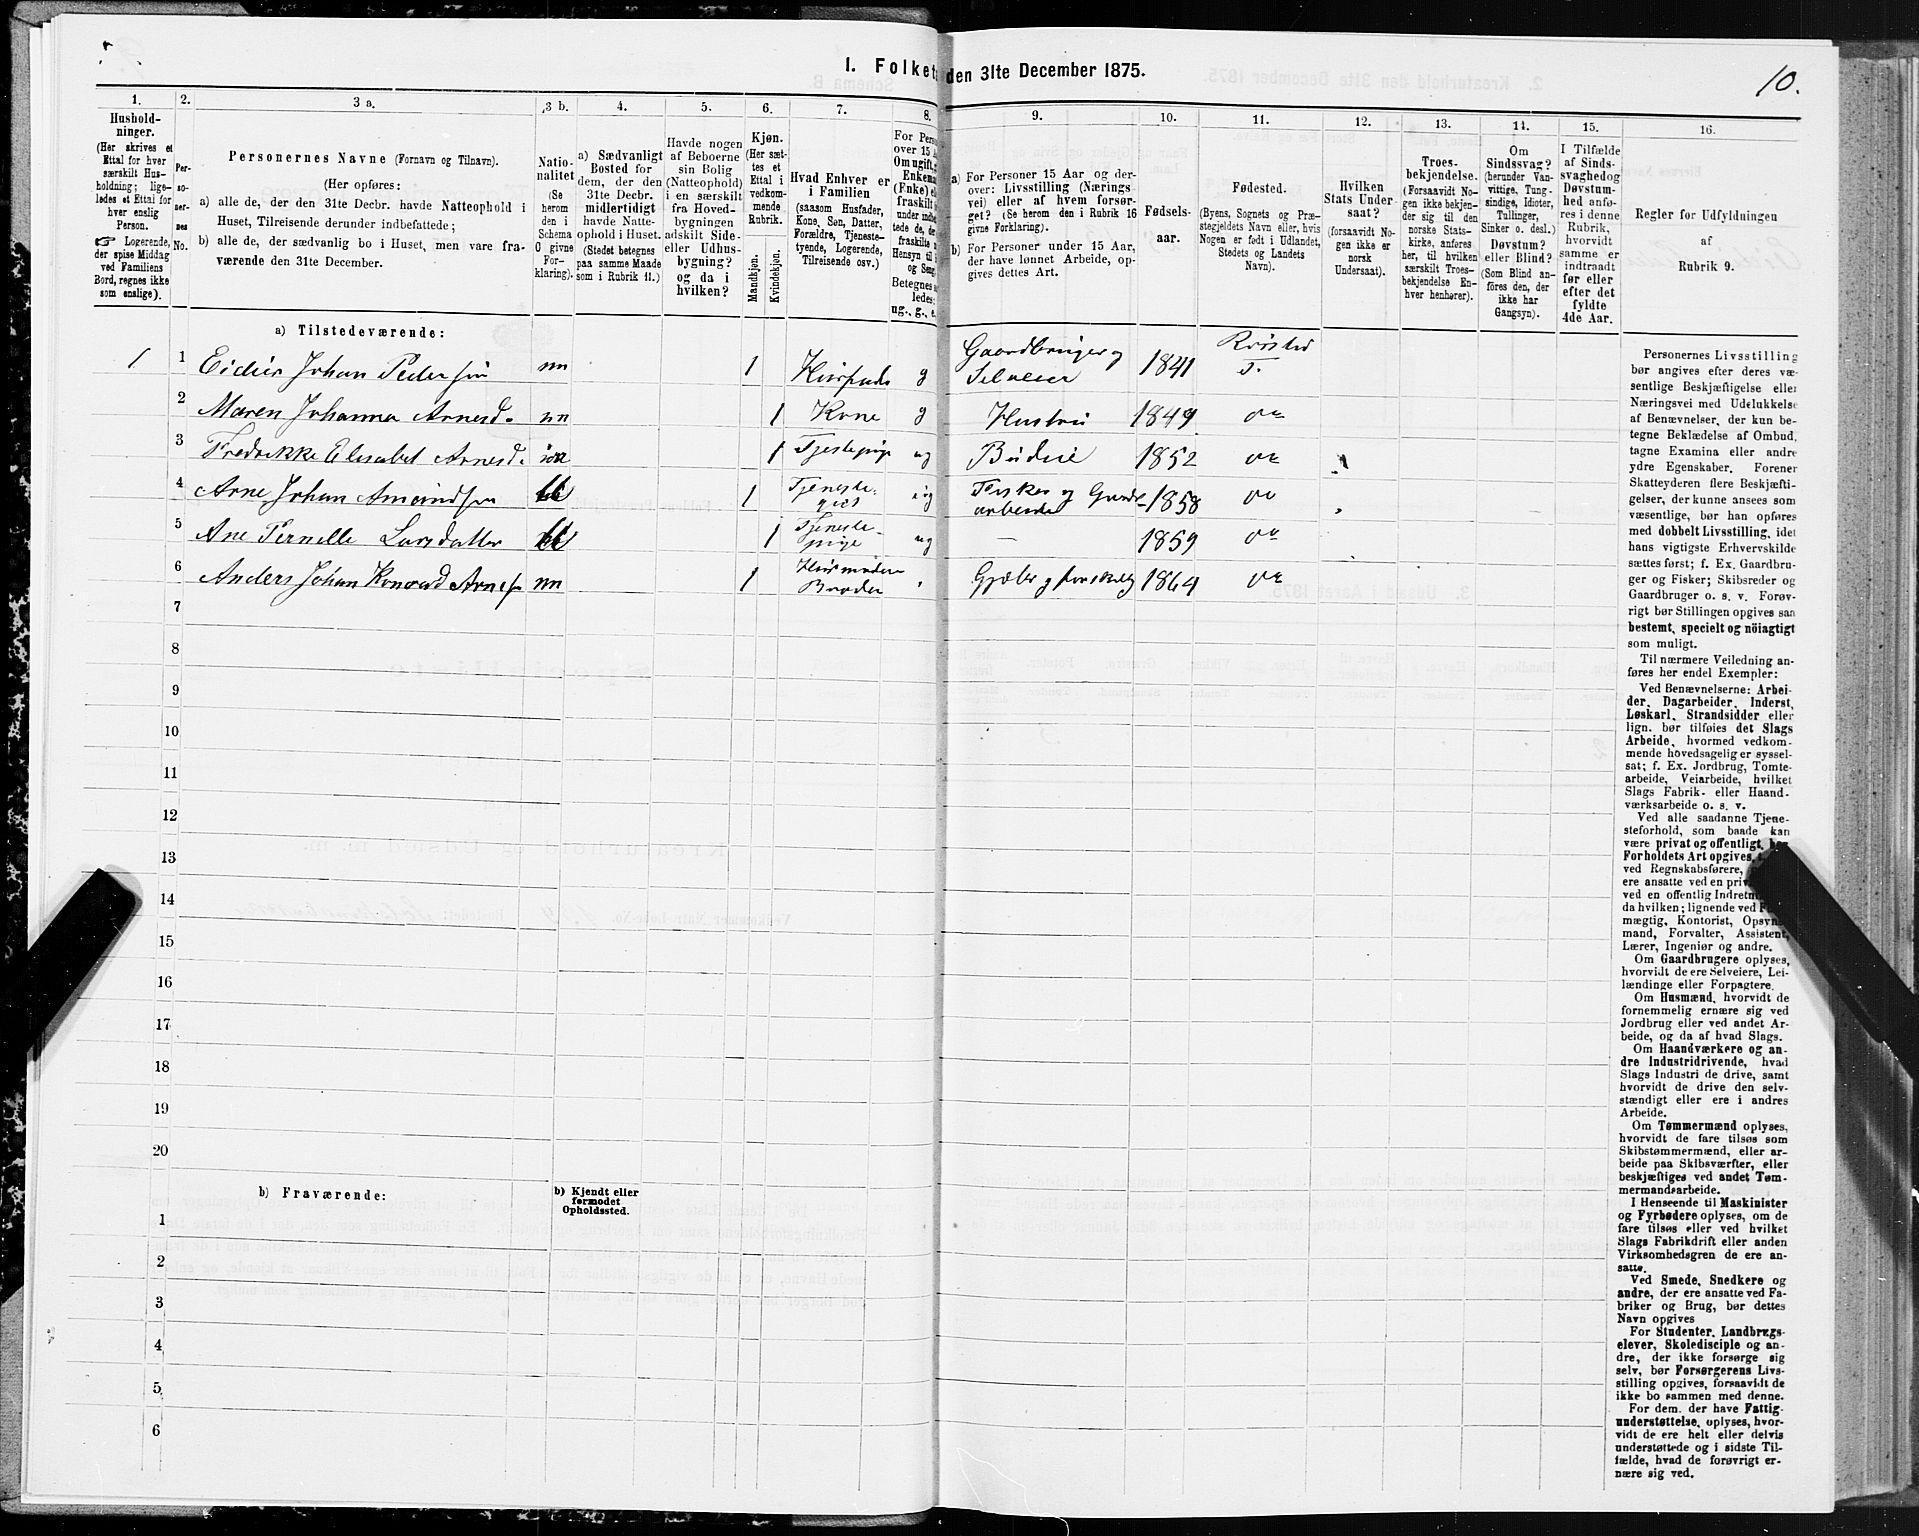 I. Folket
den 31te December 1875.
10.
1.
2.
3 a.
3 b.
4.
5.
6.
7.
8.
9.
10.
11.
12.
13.
14.
15.
16.
Hushold-
ninger.
(Her skrives et
Ettal for hver
særskilt Hus-
holdning; lige-
ledes et Ettal for
hver enslig
Person.
☞ Logerende,
der spise Middag
ved Familiens
Bord, regnes ikke
som enslige).
Per-
so-
ner-
nes
No.
Personernes Navne (Fornavn og Tilnavn).
(Her opføres:
a) alle de, der den 31te Decbr. havde Natteophold i
Huset, Tilreisende derunder indbefattede;
b) alle de, der sædvanlig bo i Huset, men vare fra-
værende den 31te December.
Natio-
nalitet
(Se
herom
den i
Schema
C givne
For-
klaring).
a) Sædvanligt
Bosted for
dem, der den
31te Decbr.
midlertidigt
havde Natte-
ophold i Huset.
(Stedet betegnes
paa samme Maade
som i Rubrik 11.)
Havde nogen
af Beboerne
sin Bolig
(Natteophold)
i en særskilt
fra Hoved-
bygningen
adskilt Side-
eller Udhus-
bygning?
og da i
hvilken?
Kjøn.
(Her sæt-
tes et
Ettal i
vedkom-
mende
Rubrik.
Mandkjøn.
Kvindekjøn.
Hvad Enhver er
i Familien
(saasom Husfader,
Kone, Søn, Datter,
Forældre, Tjeneste-
tyende, Logerende,
Tilreisende osv.)
For Pers
over 15 A
Om ugift,
Enkema
(Enke) el
fraskilt
under indbe
tede de, de
fraskilte
Hensyn til
og Seng
Betegnes
ledes:
ug., g., e.
a) For Personer 15 Aar og der-
over: Livsstilling (Nærings
vei) eller af hvem forsør-
get? (Se herom den i Rubrik 16
givne Forklaring).
b) For Personer under 15 Aar,
der have lønnet Arbeide, op-
gives dettes Art.
Fødsels-
aar.
Fødested.
(Byens, Sognets og Præ-
stegjeldets Navn eller, hvis
Nogen er født i Udlandet,
Stedets og Landets
Navn).
Hvilken
Stats Under
saat?
(forsaavidt No-
gen ikke er
norsk
Undersaat).
Troes-
bekjendelse.
(Forsaavidt No-
gen ikke bekjen-
der sig til den
norske Stats-
kirke, anføres
her, til hvilken
særskilt Troes-
bekjendelse En-
hver henhører).
Om
Sindssvag?
(herunder Van-
vittige, Tung-
sindige, Idioter,
Tullinger,
Sinker o. desl.)
Døvstum?
eller Blind?
(Som Blind an-
føres den, der
ikke har
Gangsyn).
I Tilfælde
af Sinds-
svaghed og
Døvstum-
hed anfø-
res i denne
Rubrik,
hvorvidt
samme er
indtraadt
før eller
efter det
fyldte
4de Aar.
Regler for Udfyldningen
af
Rubrik 9.
a) Tilstedeværende:
1 1 Johan Pedersen nn 1 g Gaardbruger og Selveier 1841
2 Maren Johanna Arnesd. nn 1 Kone g Hustru 1849 do
3 Fredrikke Elisabet Arnesd. 1 ug Budeie 1852 do
4 Arne Johan Amundsen 1 Tjeneste- ug Fisker og Gaards- arbeider 1858 do
5 Ane Pernelle Larsdatter 1 Tjeneste- pige ug — 1859 do
6 Anders Johan Konrad Arnes. nn 1 Husmoderens Broder 1864 do
7
8
9
10
11
12
13
14
15
16
17
18
19
20
b) Fraværende:
b) Kjendt eller
formodet
Opholdssted.
1
2
3
4
5
6
Personernes Livsstilling
bør angives efter deres væ-
sentlige Beskjæftigelse eller
Næringsvei med Udelukkelse
af Benævnelser, der kun be-
tegne Beklædelse af Ombud,
tagne Examina eller andre
ydre Egenskaber. Forener
Skatteyderen flere Beskjæfti-
gelser, der kunne ansees som
væsentlige, bør han opføres
med dobbelt Livsstilling, idet
hans vigtigste Erhvervskilde
sættes først; f. Ex. Gaardbru-
ger og Fisker; Skibsreder og
Gaardbruger o. s. v. Forøv-
rigt bør Stillingen opgives saa
bestemt, specielt og nöiagtigt
som muligt.
Til nærmere Veiledning an-
føres her endel Exempler:
Ved Benævnelserne: Arbei-
der, Dagarbeider, Inderst,
Løskarl, Strandsidder eller
lign. bør tilføies det Slags
Arbeide, hvormed vedkom-
mende hovedsagelig er syssel-
sat; f. Ex. Jordbrug, Tomte-
arbeide, Veiarbeide, hvilket
Slags Fabrik- eller Haand-
værksarbeide o. s. v.
Ved alle saadanne Tjene-
steforhold, som baade kan
være privat og offentligt, bør
Forholdets Art opgives,
ved Regnskabsførere,
ere ansatte ved en pri
ved en offentlig Indretn
da hvilken; lignende ved F
mægtig, Kontorist, Opsyns-
mand, Forvalter, Assistent,
Lærer, Ingeniør og andre.
Om Gaardbrugere oplyses,
hvorvidt de ere Selveiere, Lei-
lændinge eller Forpagtere.
Om Husmænd, hvorvidt de
fornemmelig ernære sig ved
Jordbrug eller ved andet Ar-
beide, og da af hvad Slags.
Om Haandværkere og an-
dre Industridrivende, hvad
Slags Industri de drive, samt
hvorvidt de drive den selv-
stændigt eller ere i andres
Arbeide.
Om Tømmermænd oplyses,
hvorvidt de fare tilsøs som
Skibstømmermænd, eller ar-
beide paa Skibsværfter, eller
beskjæftiges ved andet Tøm-
mermandsarbeide.
I Henseende til Maskinister
og Fyrbødere oplyses, om de
fare tilsøs eller ved hvilket
Slags Fabrikdrift eller anden
Virksomhedsgren de ere an-
satte.
Ved Smede, Snedkere og
andre, der ere ansatte ved Fa-
briker og Brug, bør dettes
Navn opgives
For Studenter, Landbrugs-
elever, Skoledisciple og an-
dre, der ikke forsørge sig
selv, bør Forsørgerens Livs-
stilling opgives, forsaavidt de
ikke bo sammen med denne.
For dem, der have Fattig-
understøttelse, oplyses, hvor-
vidt de ere helt eller delvis
understøttede og i sidste Til-
fælde, hvad de forøvrigt er-
nære sig ved.